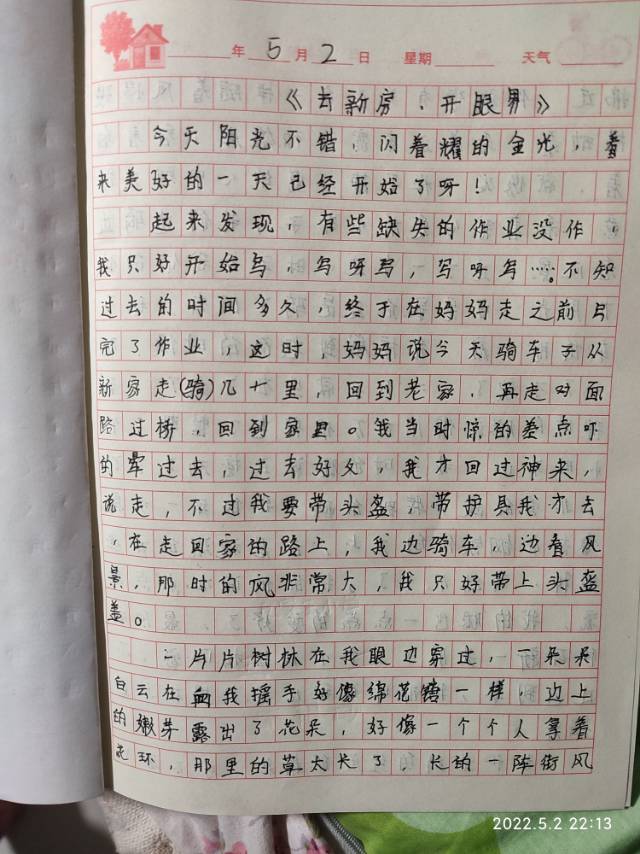 年 5 月 2 日 星期 天气
《去新房，开眼界》
今天阳光不错，闪着耀的金光，看
来美好的一天已经开始了呀！
起来发现，有些缺失的作业没作，
我只好开始写，写呀写，写呀写……不知
过去的时间多久，终于在妈妈走之前占
完了作业，这时，妈妈说今天骑车子从
新家走(骑)几十里，回到老家，再走对面
路过桥，回到家里。我当时惊的差点吓
的晕过去，过去好久，我才回过神来，
说走，不过我要带头盔，带护具我才去
，在走回家的路上，我边骑车，边看风
景，那时的风非常大，我只好带上头盔
盖。
一片片树林在我眼边穿过，一朵朵
白云在向我摇手好像绵花糖一样，边上
的嫩芽露出了花朵，好像一个个人拿着
花环，那里的草太长了，长的一阵街风
2022.5.2 22:13